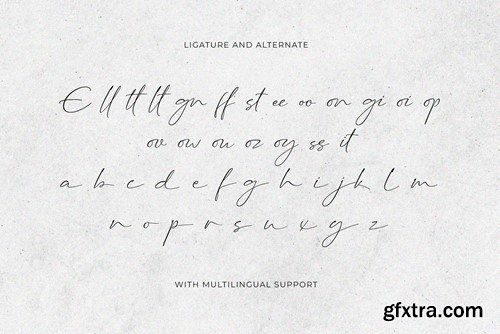 LIGATURE AND ALTERNATE
E ll tt lt gn ff st ee oo on gi oi op
ov ow ou oz oy ss it
a b c d e f g h i j k l m
n o p r s u x y z
WITH MULTILINGUAL SUPPORT
gfxtra.com